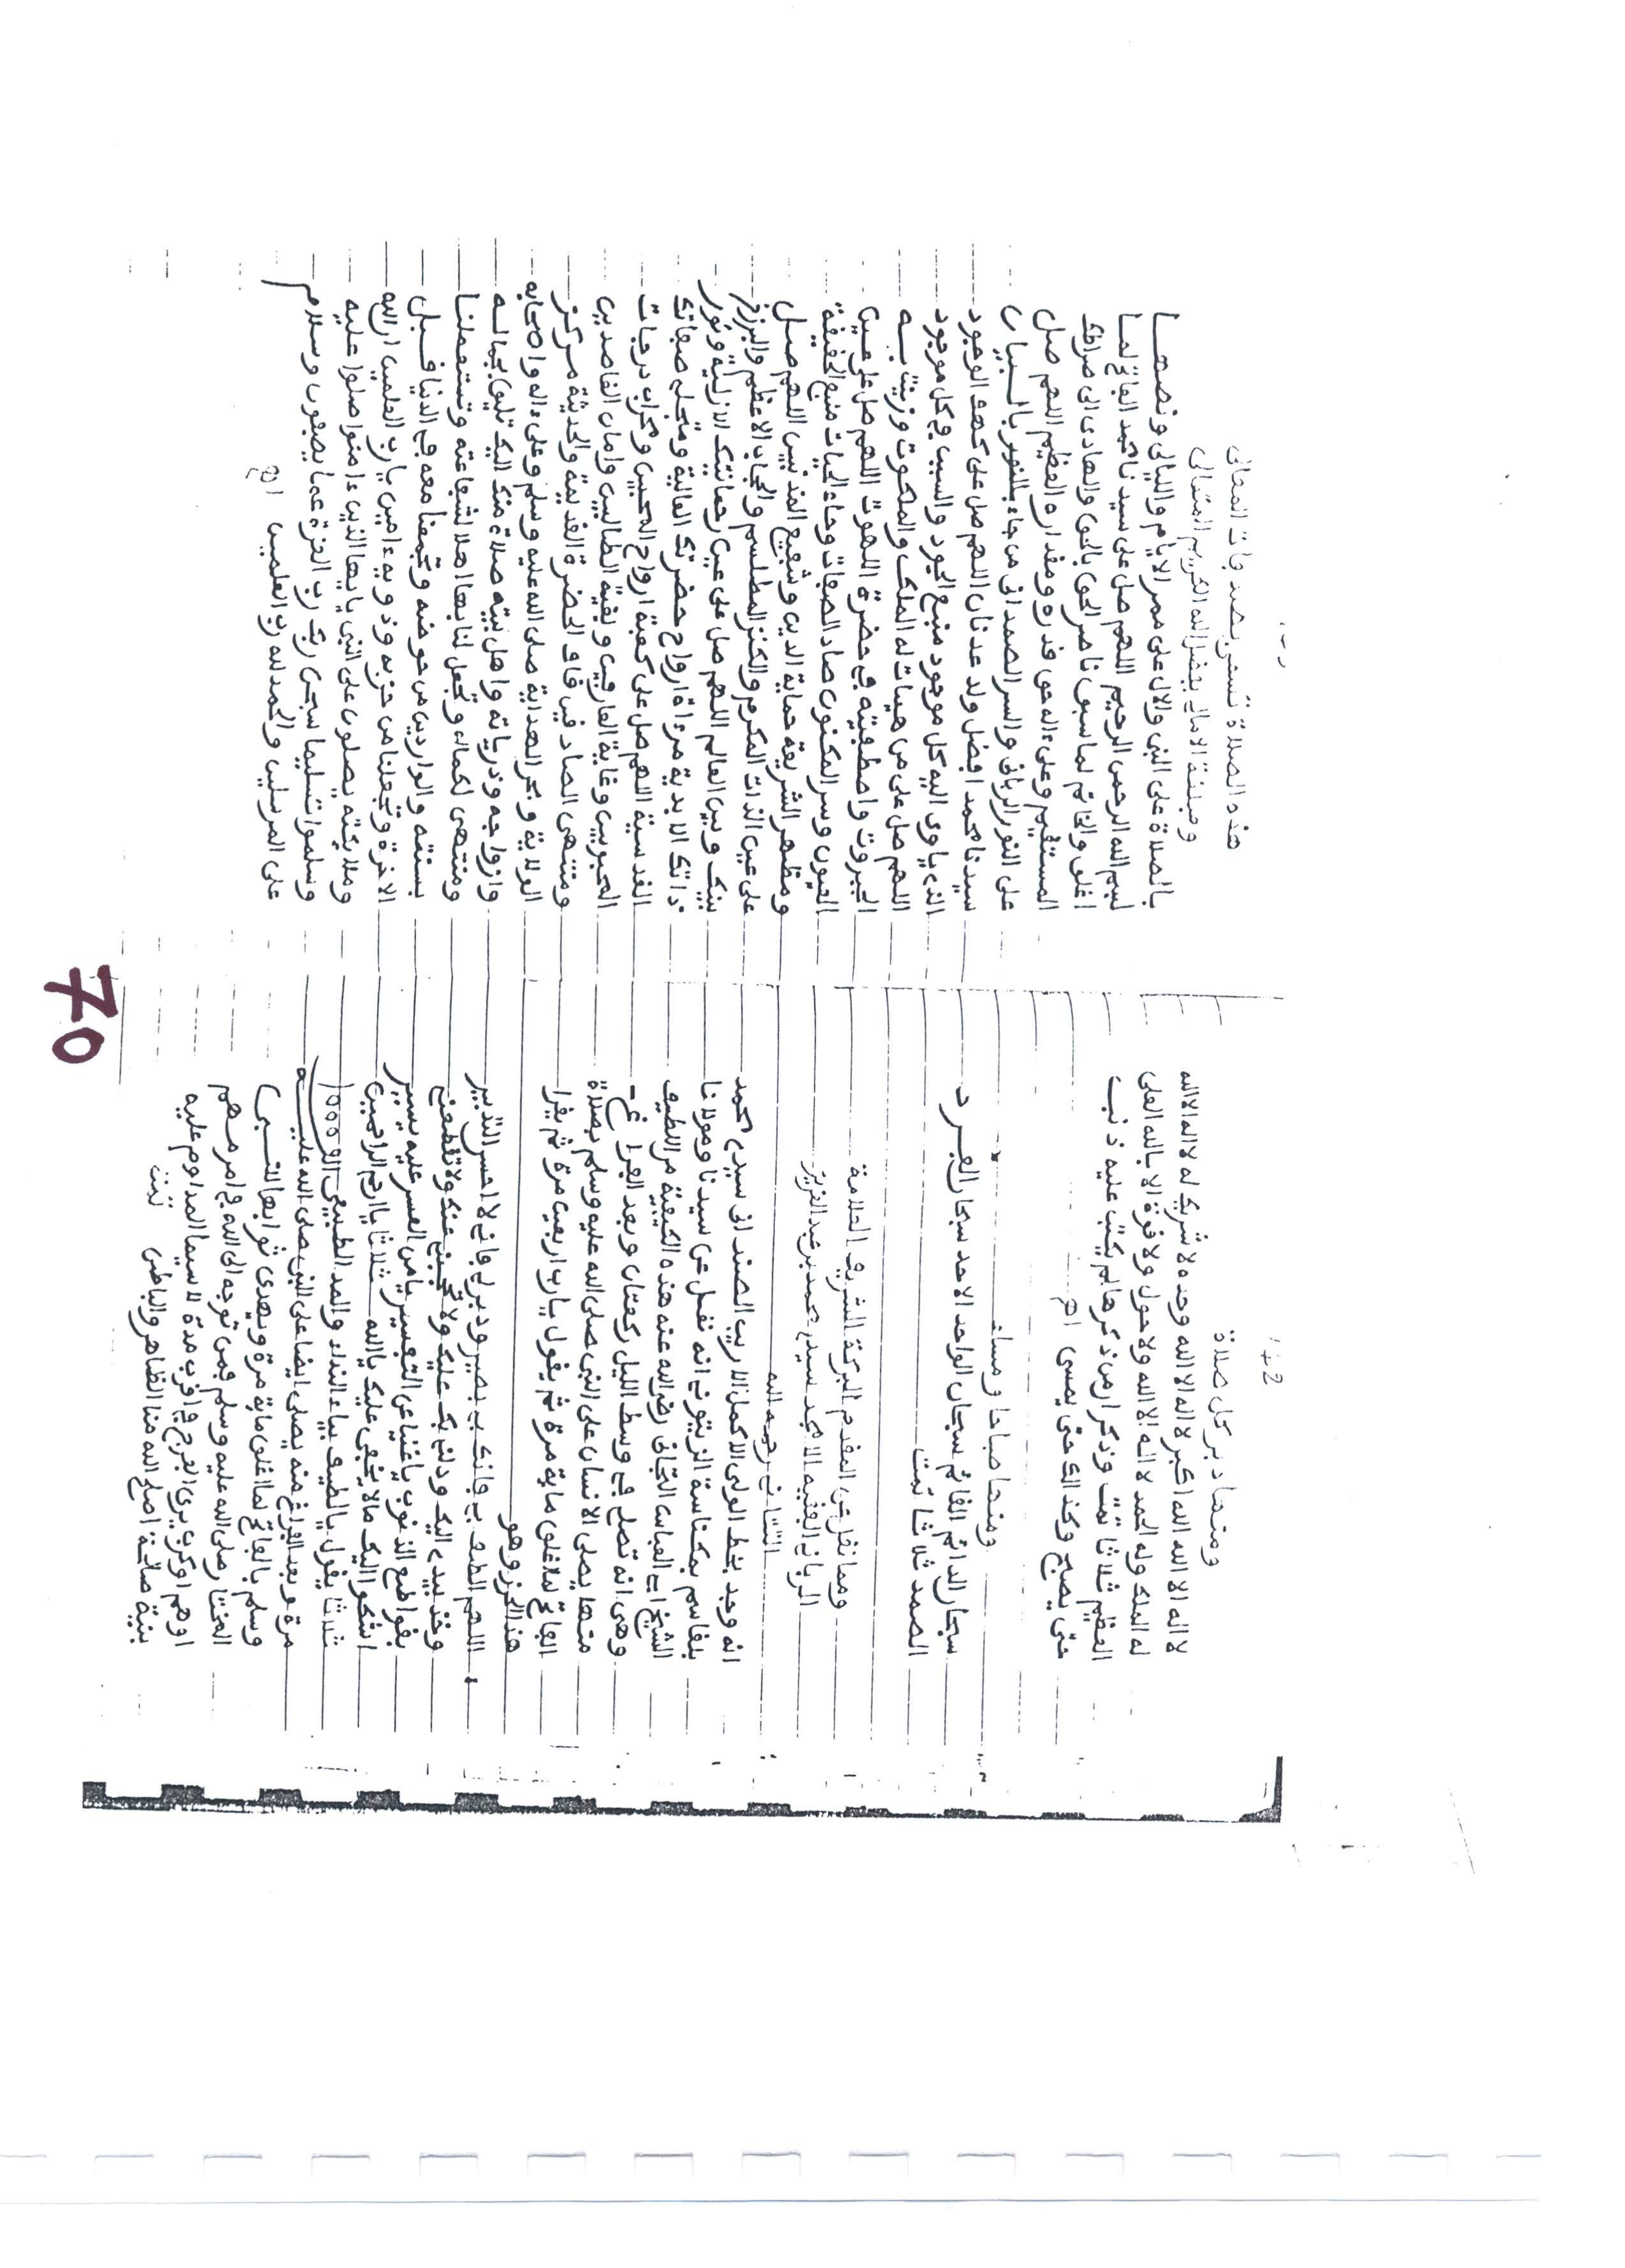 142
ومنها دبر كل صلاة
لا اله الا الله الله اكبر لا اله الا الله وحده لا شريك له لا اله الا الله
له الملك وله الحمد لا اله الا الله ولا حول ولا قوة الا بالله العلى
العظيم ثلاثا تمت وذكر ان من ذكرها لم يكتب عليه ذنب
حتى يصبح وكذالك حتى يمسى اهـ
ومنها صباحا ومساء
سبحان الدائم القائم سبحان الواحد الاحد سبحان الفرد
الصمد ثلاثا تمت
ومما نقل عن المقدم البركة الشريف العلامة
الربانى الفقيه الامجد سيدي محمد بن عبد العزيز
رحمه الله
انه وجد بخط الولى الاكمل الاريب سيدي محمد
بلقاسم بمكناسة الزيتون انه نقل عن سيدنا ومولانا
الشيخ ابي العباس التجانى رضي الله عنه هذه الكيفية من اللطيف
وهى انه تصلى في وسط الليل ركعتان وبعد الفراغ
منها يصلى الانسان على النبى صلى الله عليه وسلم بصلاة
الفاتح لما اغلق ماية مرة ثم يقول يارب اربعين مرة ثم يقرا
هذا الحزر وهو
اللهم الطف بي فانك بي بصير ودبر لي فاني لا احسن التدبير
وخذ بيدي اليك ودلني بك عليك ولا تحجبني عنك ولا تقطعني
بقواطع الذنوب ياغنيا عن التفسير يا من العسر عليه يسير
اشكوا اليك ما لا يخفى عليك ياالله ثلاثا ياارحم الراحمين
ثلاثا يقول يالطيف بياء النداء والمد الطبيعى الف 1000
مرة وبعد الفراغ منه يصلى ايضا على النبى صلى الله عليه
وسلم بالفاتح لما اغلق ماية مرة ويهدى ثوابها للنبى
المختار صلى الله عليه وسلم فمن توجه الى الله في امر مهم
او هم او كرب يرى الفرج في اقرب مدة لا سيما المداوم عليه
بنية صالحة اصلح الله منا الظاهر والباطن تمت
هذه الصلاة تسمى
ومبلغة الامال بفضل الله الكريم المتعالى
بالصلاة على النبى والال على ممر الايام والليالى ونصها
بسم الله الرحمن الرحيم اللهم صل على سيدنا محمد الفاتح لما
اغلق والخاتم لما سبق ناصر الحق بالحق والهادى الى صراطك
المستقيم وعلى ءاله حق قدره ومقداره العظيم اللهم صل
على النور الربانى والسر الصمدانى من جاء بالنور بالبيان
سيدنا محمد افضل ولد عدنان اللهم صل على كهف الوجود
الذي ياوى اليه كل موجود منبع الجود والسبب في كل موجود
اللهم صل على من هيات له الملك والملكوت وزينت به
الجبروت واصطفيته في حضرة اللهوت اللهم صل على عين
العيون وسر المكنون صاد الصفات وحاء الحيات منبع الحقيقة
ومظهر الشريعة حماية الدين وشفيع المذنبين اللهم صل
على عين الذات المكرم والكنز المطلسم والحجاب الاعظم والبرزخ
بينك وبين العالم اللهم صل على عين رحمانيتك الازلية ونور
ذاتك الابدية مرءاة ارواح حضرتك العالية ومتجلى صفاتك
القدسية اللهم صل على كعبة ارواح المحبين ومحراب درجات
المحبوبين وغاية العارفين وبغية الطالبين وامان القاصدين
ومنتهى الصادقين قاف الحضرة القديمة والحديثة مركز
الولاية وبحر الهداية صلى الله عليه وسلم وعلى ءاله واصحابه
وازواجه وذرياته واهل بيته صلاة منك اليك تليق بجماله
ومنتهى لكماله وتجعل لنا بها اهلا لشفاعته وتستعملنا
بسنته والواردين من حوضه وتجمعنا معه في الدنيا قبل
الاخرة وتجعلنا من حزبه وذويه ءامين يارب العلمين ان الله
وملايكته يصلون على النبى يايها الذين ءامنوا صلوا عليه
وسلموا تسليما سبحن ربك رب العزة عما يصفون وسلام
على المرسلين والحمد لله رب العلمين اهـ
70